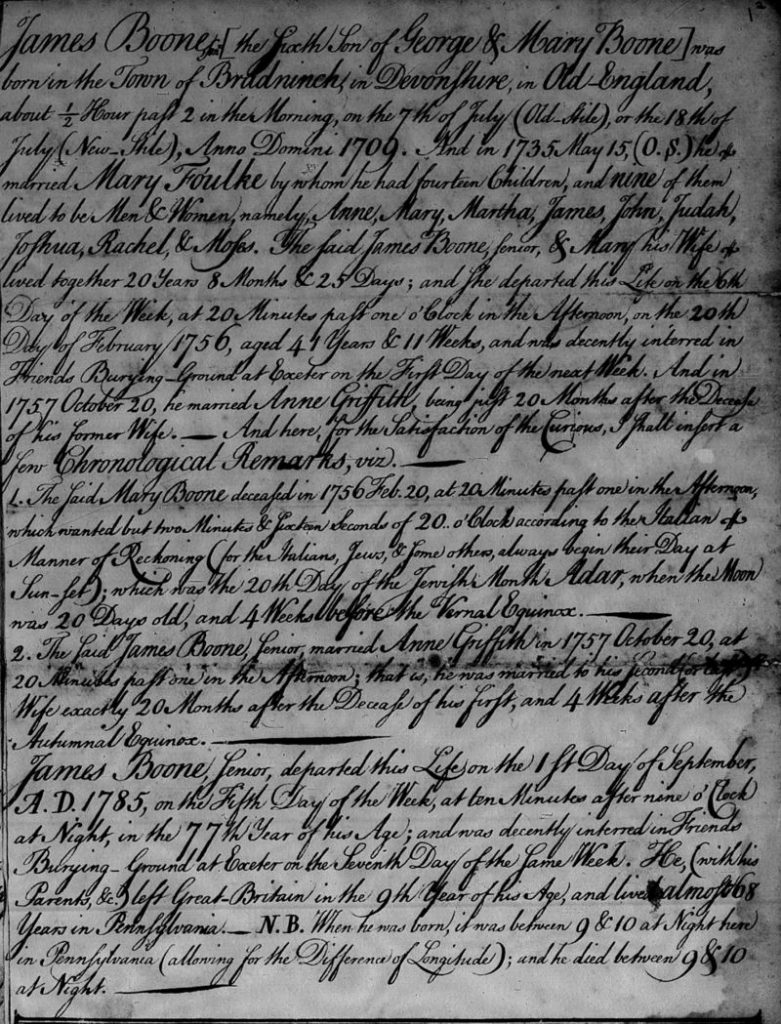 12
James Boone, Senr. [the Sixth Son of George & Mary Boone] was
born in the Town of Bradninch, in Devonshire, in Old-England,
about ½ Hour past 2 in the Morning, on the 7th of July (Old-Stile), or the 18th of
July (New-Stile), Anno Domini 1709. And in 1735 May 15, (O.S.) he
married Mary Foulke by whom he had fourteen Children, and nine of them
lived to be Men & Women, namely, Anne, Mary, Martha, James, John, Judah,
Joshua, Rachel, & Moses. The said James Boone, Senior, & Mary his Wife
lived together 20 Years 8 Months & 25 Days; and she departed this Life on the 6th
Day of the Week, at 20 Minutes past one o'Clock in the Afternoon, on the 20th
Day of February 1756, aged 41 Years & 11 Weeks, and was decently interred in
Friends Burying-Ground at Exeter on the First Day of the next Week. And in
1757 October 20, he married Anne Griffith, being just 20 Months after the Decease
of his former Wife. — And here, for the Satisfaction of the Curious, I shall insert a
few Chronological Remarks, viz. —
1. The said Mary Boone deceased in 1756 Feb. 20, at 20 Minutes past one in the Afternoon,
which wanted but two Minutes & Sixteen Seconds of 20 o'Clock according to the Italian
Manner of Reckoning (for the Italians, Jews, & some others, always begin their Day at
Sun-set); which was the 20th Day of the Jewish Month Adar, when the Moon
was 20 Days old, and 4 Weeks before the Vernal Equinox. —
2. The said James Boone, Senior, married Anne Griffith in 1757 October 20, at
20 Minutes past one in the Afternoon; that is, he was married to his second
Wife exactly 20 Months after the Decease of his first, and 4 Weeks after the
Autumnal Equinox. —
James Boone, Senior, departed this Life on the 1st Day of September,
A.D. 1785, on the Fifth Day of the Week, at ten Minutes after nine o'Clock
at Night, in the 77th Year of his Age; and was decently interred in Friends
Burying-Ground at Exeter on the Seventh Day of the same Week. He, (with his
Parents, &c.) left Great-Britain in the 9th Year of his Age, and lived almost 68
Years in Pennsylvania. — N.B. When he was born, it was between 9 & 10 at Night here
in Pennsylvania (allowing for the Difference of Longitude); and he died between 9 & 10
at Night. —